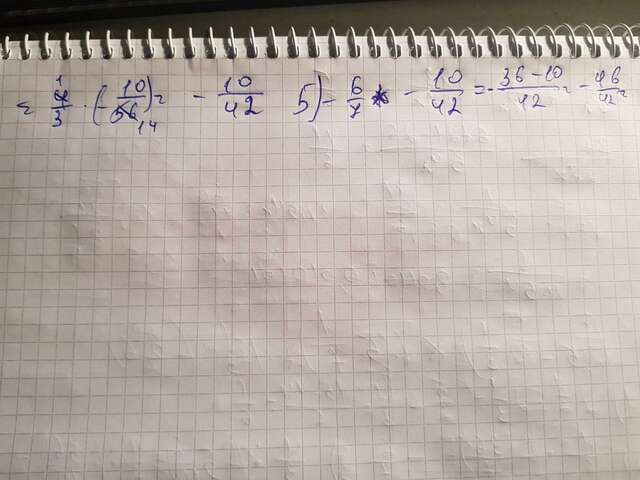 = 4/3 1 · (- 10/56 14) = - 10/42 5) - 6/7 - 10/42 = - 36 - 10/42 = - 46/42 =